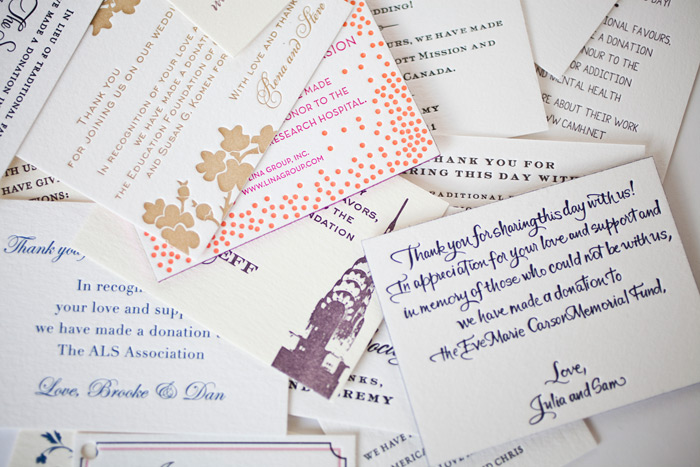 IN LIEU OF TRADITIONAL
MADE A DONATION
THANK YOU
FOR JOINING US ON OUR WEDD
IN RECOGNITION OF YOUR LOVE A
WE HAVE MADE A DONAT
THE EDUCATION FOUNDATION OF
AND SUSAN G. KOMEN FOR
WITH LOVE AND THANK
Rena and Steve
MADE
HONOR TO THE
RESEARCH HOSPITAL.
LINA GROUP, INC.
WWW.LINAGROUP.COM
WE HAVE MADE
OTT MISSION AND
CANADA.
TIONAL FAVOURS,
A DONATION
OUR TO THE
FOR ADDICTION
MENTAL HEALTH
MORE ABOUT THEIR WORK
WWW.CAMH.NET
THANK YOU FOR
SHARING THIS DAY WITH
HAVE GIVEN
THE
EFF
Thank you
In recogni
your love and supp
we have made a donation
The ALS Association
Love, Brooke & Dan
Thank you for sharing this day with us!
In appreciation for your love and support and
in memory of those who could not be with us,
we have made a donation to
the Eve Marie Carson Memorial Fund,
Love,
Julia and Sam
WE HAVE
AMERICA
CHRIS